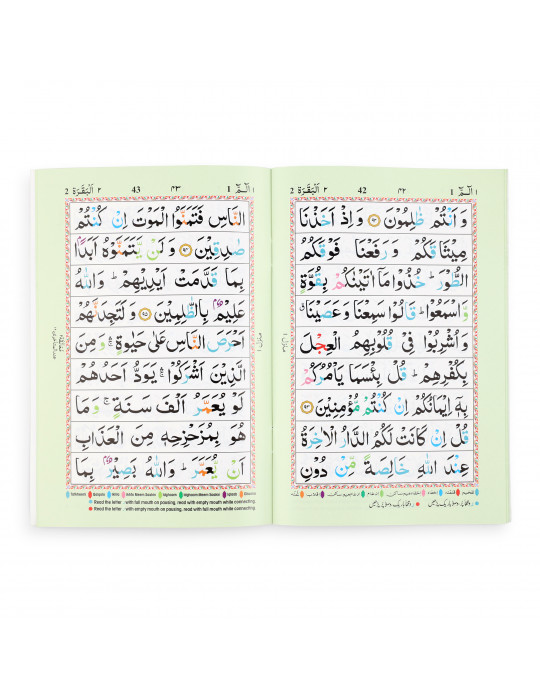 ١ الٓمّٓ ١ ٤٢ 42 ٢ اَلْبَقَرَة 2
وَاَنْتُمْ ظٰلِمُوْنَ ﴿۹۲﴾ وَاِذْ اَخَذْنَا
مِيْثَاقَكُمْ وَرَفَعْنَا فَوْقَكُمُ
الطُّوْرَ ؕ خُذُوْا مَاۤ اٰتَيْنٰكُمْ بِقُوَّةٍ
وَّاسْمَعُوْا ؕ قَالُوْا سَمِعْنَا وَعَصَيْنَا
وَاُشْرِبُوْا فِيْ قُلُوْبِهِمُ الْعِجْلَ
بِكُفْرِهِمْ ؕ قُلْ بِئْسَمَا يَاْمُرُكُمْ
بِهٖۤ اِيْمَانُكُمْ اِنْ كُنْتُمْ مُّؤْمِنِيْنَ ﴿۹۳﴾
قُلْ اِنْ كَانَتْ لَكُمُ الدَّارُ الْاٰخِرَةُ
عِنْدَ اللّٰهِ خَالِصَةً مِّنْ دُوْنِ
١ الٓمّٓ 1 ٤٣ 43 ٢ اَلْبَقَرَة 2
النَّاسِ فَتَمَنَّوُا الْمَوْتَ اِنْ كُنْتُمْ
صٰدِقِيْنَ ﴿۹۴﴾ وَلَنْ يَّتَمَنَّوْهُ اَبَدًۢا
بِمَا قَدَّمَتْ اَيْدِيْهِمْ ؕ وَاللّٰهُ
عَلِيْمٌۢ بِالظّٰلِمِيْنَ ﴿۹۵﴾ وَلَتَجِدَنَّهُمْ
اَحْرَصَ النَّاسِ عَلٰى حَيٰوةٍ ۛۚ وَمِنَ
الَّذِيْنَ اَشْرَكُوْا ۛۚ يَوَدُّ اَحَدُهُمْ
لَوْ يُعَمَّرُ اَلْفَ سَنَةٍ ۚ وَمَا
هُوَ بِمُزَحْزِحِهٖ مِنَ الْعَذَابِ
اَنْ يُّعَمَّرَ ؕ وَاللّٰهُ بَصِيْرٌۢ بِمَا
Read the letter . with full mouth on pausing, read with empty mouth while connecting.
Read the letter . with empty mouth on pausing, read with full mouth while connecting.